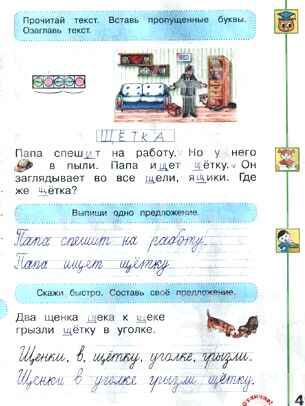 Прочитай текст. Вставь пропущенные буквы.
Озаглавь текст.
ЩЁТКА
Папа спешит на работу. Но у него
в пыли. Папа ищет щётку. Он
заглядывает во все щели, ящики. Где
же щётка?
Выпиши одно предложение.
Папа спешит на работу.
Папа ищет щётку.
Скажи быстро. Составь своё предложение.
Два щенка щека к щеке
грызли щётку в уголке.
Щенки, в, щётку, уголке, грызли.
Щенки в уголке грызли щётку.
4